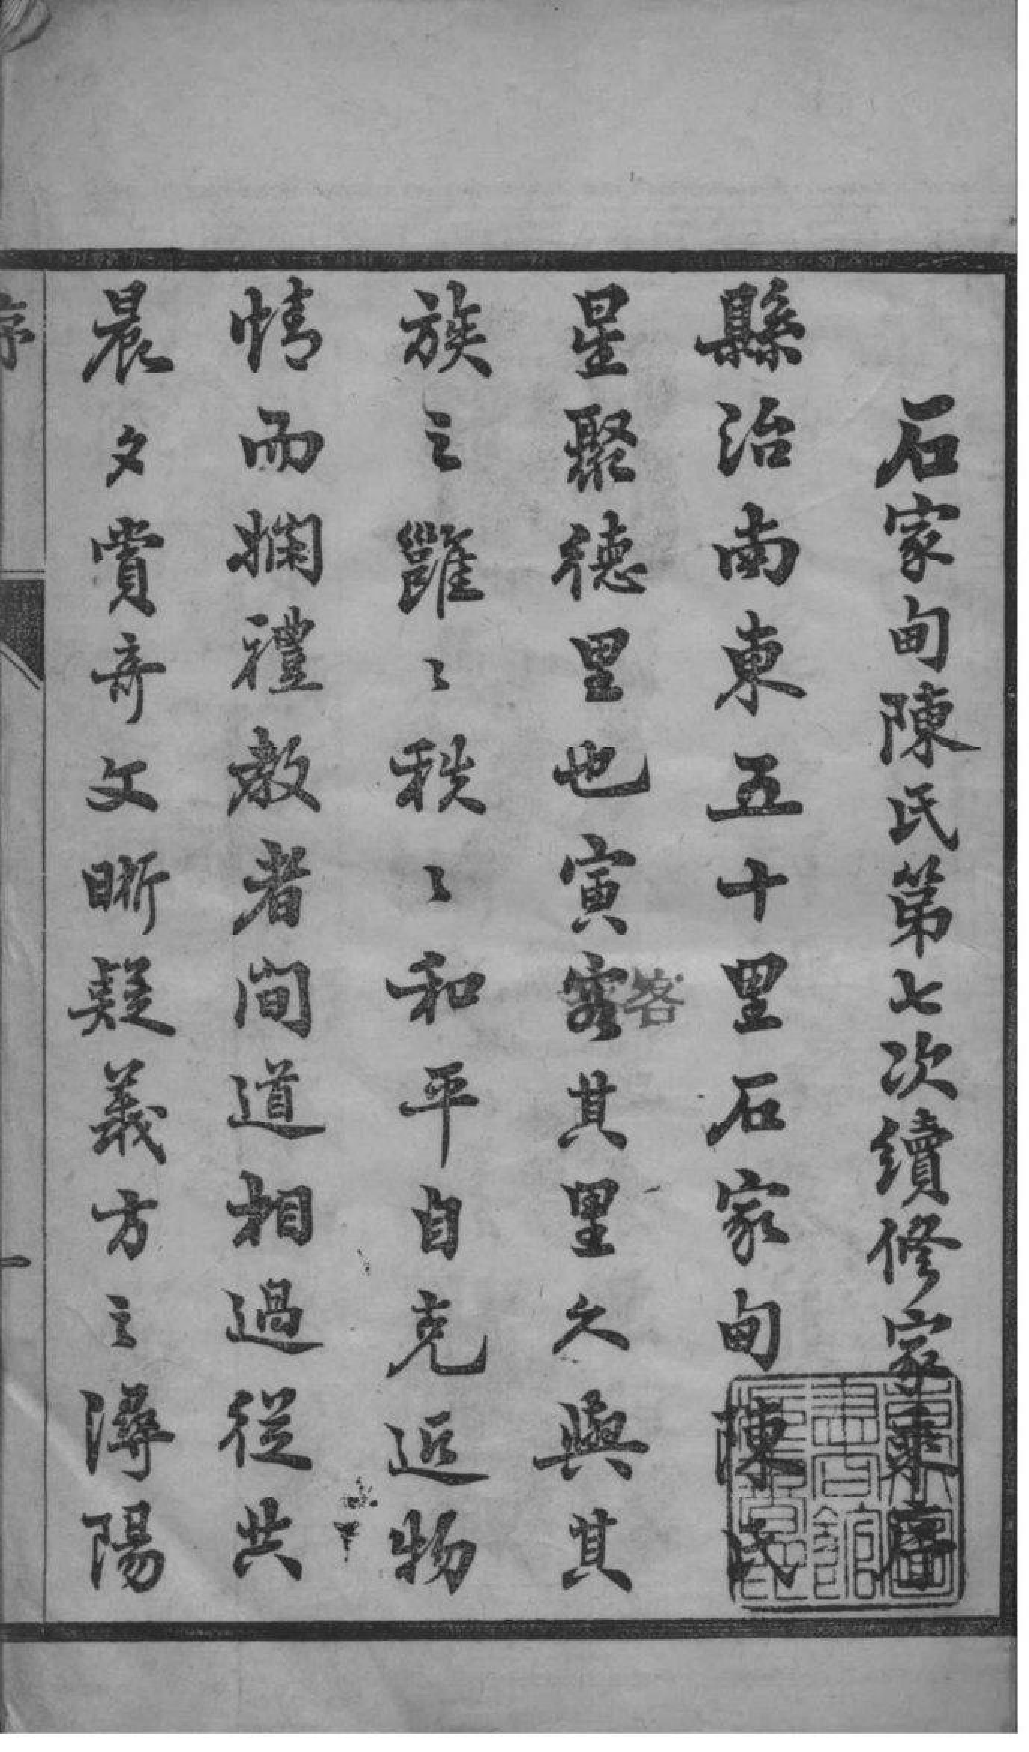 石家甸陳氏第七次續修家乘序
縣治南東五十里石家甸陳氏
星聚德里也寅客其里久與其
客
族之雝〻秩〻和平自克近物
情而嫻禮教者間道相過從共
晨夕賞奇文晰疑義方之潯陽
序
一